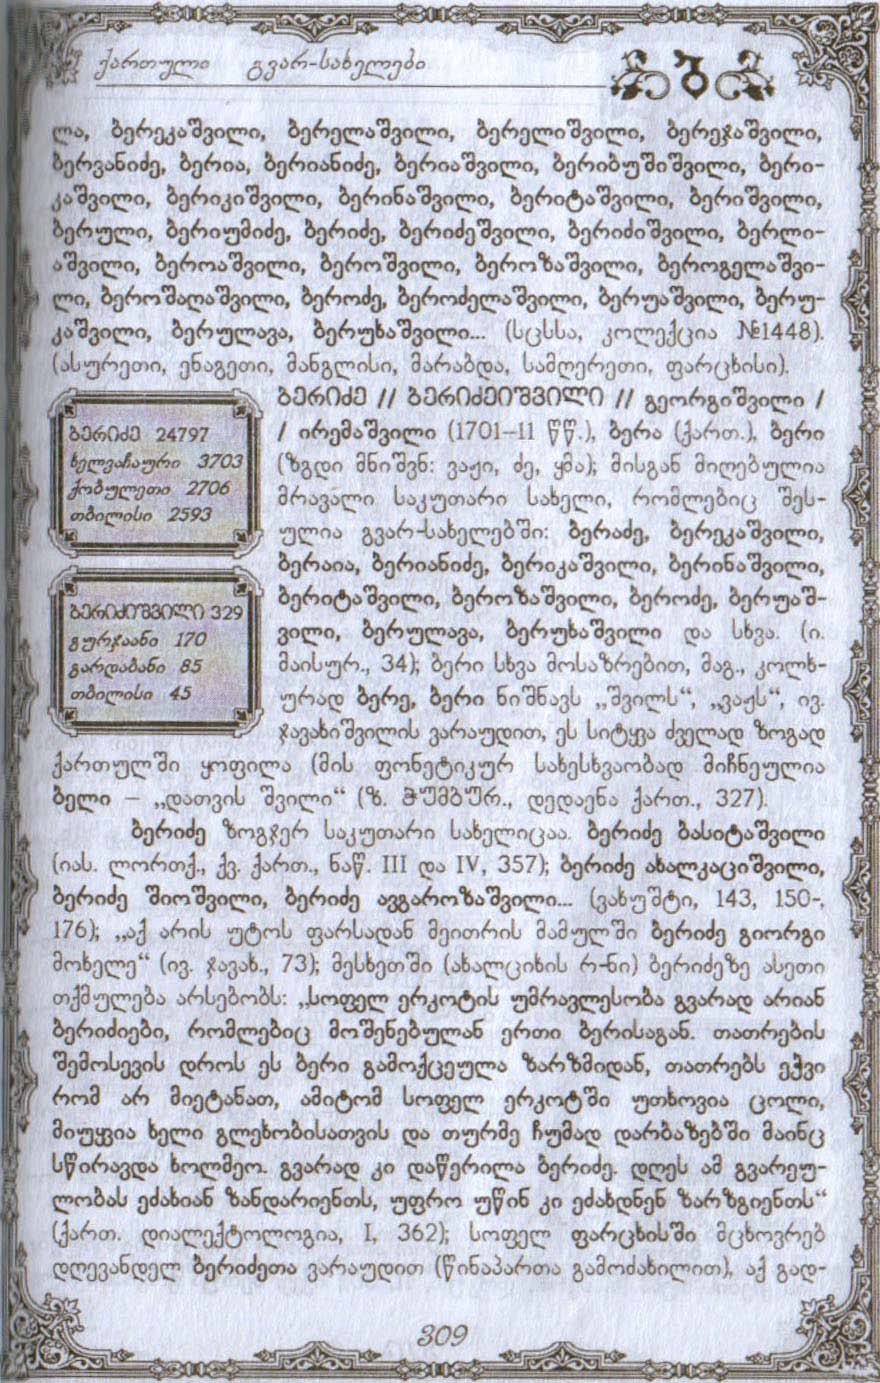 ქართული გვარ-სახელები
ბ
ლა, ბერეკაშვილი, ბერელაშვილი, ბერელიშვილი, ბერეჯაშვილი,
ბერვანიძე, ბერია, ბერიანიძე, ბერიაშვილი, ბერიბუშიშვილი, ბერი-
კაშვილი, ბერიკიშვილი, ბერინაშვილი, ბერიტაშვილი, ბერიშვილი,
ბერული, ბერიუმიძე, ბერიძე, ბერიძეშვილი, ბერიძიშვილი, ბერლი-
აშვილი, ბეროაშვილი, ბეროშვილი, ბეროზაშვილი, ბეროგელაშვი-
ლი, ბეროშაღაშვილი, ბეროძე, ბეროძელაშვილი, ბერუაშვილი, ბერუ-
კაშვილი, ბერულავა, ბერუხაშვილი... (სცსსა, კოლექცია №1448).
(ასურეთი, ენაგეთი, მანგლისი, მარაბდა, სამღერეთი, ფარცხისი).
ბერიძე // ბერიძეიშვილი // გეორგიშვილი /
/ ირემაშვილი (1701–11 წწ.), ბერა (ქართ.), ბერი
(ზგდი მნიშვნ: ვაჟი, ძე, ყმა); მისგან მიღებულია
მრავალი საკუთარი სახელი, რომლებიც შეს-
ულია გვარ-სახელებში: ბერაძე, ბერეკაშვილი,
ბერაია, ბერიანიძე, ბერიკაშვილი, ბერინაშვილი,
ბერიტაშვილი, ბეროზაშვილი, ბეროძე, ბერუაშ-
ვილი, ბერულავა, ბერუხაშვილი და სხვა. (ი.
მაისურ., 34); ბერი სხვა მოსაზრებით, მაგ., კოლხ-
ურად ბერე, ბერი ნიშნავს „შვილს“, „ვაჟს“, ივ.
ჯავახიშვილის ვარაუდით, ეს სიტყვა ძველად ზოგად
ქართულში ყოფილა (მის ფონეტიკურ სახესხვაობად მიჩნეულია
ბელი – „დათვის შვილი“ (ზ. ჭუმბურ., დედაენა ქართ., 327).
ბერიძე 24797
ხელვაჩაური 3703
ქობულეთი 2706
თბილისი 2593
ბერიძიშვილი 329
გურჯაანი 170
გარდაბანი 85
თბილისი 45
ბერიძე ზოგჯერ საკუთარი სახელიცაა. ბერიძე ბასიტაშვილი
(იას. ლორთქ., ქვ. ქართ., ნაწ. III და IV, 357); ბერიძე ახალკაციშვილი,
ბერიძე შიოშვილი, ბერიძე ავგაროზაშვილი... (ვახუშტი, 143, 150-,
176); „აქ არის უტოს ფარსადან მეითრის მამულში ბერიძე გიორგი
მოხელე“ (ივ. ჯავახ., 73); მესხეთში (ახალციხის რ-ნი) ბერიძეზე ასეთი
თქმულება არსებობს: „სოფელ ერკოტის უმრავლესობა გვარად არიან
ბერიძიები, რომლებიც მოშენებულან ერთი ბერისაგან. თათრების
შემოსევის დროს ეს ბერი გამოქცეულა ზარზმიდან, თათრებს ეჭვი
რომ არ მიეტანათ, ამიტომ სოფელ ერკოტში უთხოვია ცოლი,
მიუყვია ხელი გლეხობისათვის და თურმე ჩუმად დარბაზებში მაინც
სწირავდა ხოლმეო. გვარად კი დაწერილა ბერიძე. დღეს ამ გვარეუ-
ლობას ეძახიან ზანდარიენთს, უფრო უწინ კი ეძახდნენ ზარზგიენთს“
(ქართ. დიალექტოლოგია, I, 362); სოფელ ფარცხისში მცხოვრებ
დღევანდელ ბერიძეთა ვარაუდით (წინაპართა გამოძახილით), აქ გად-
309